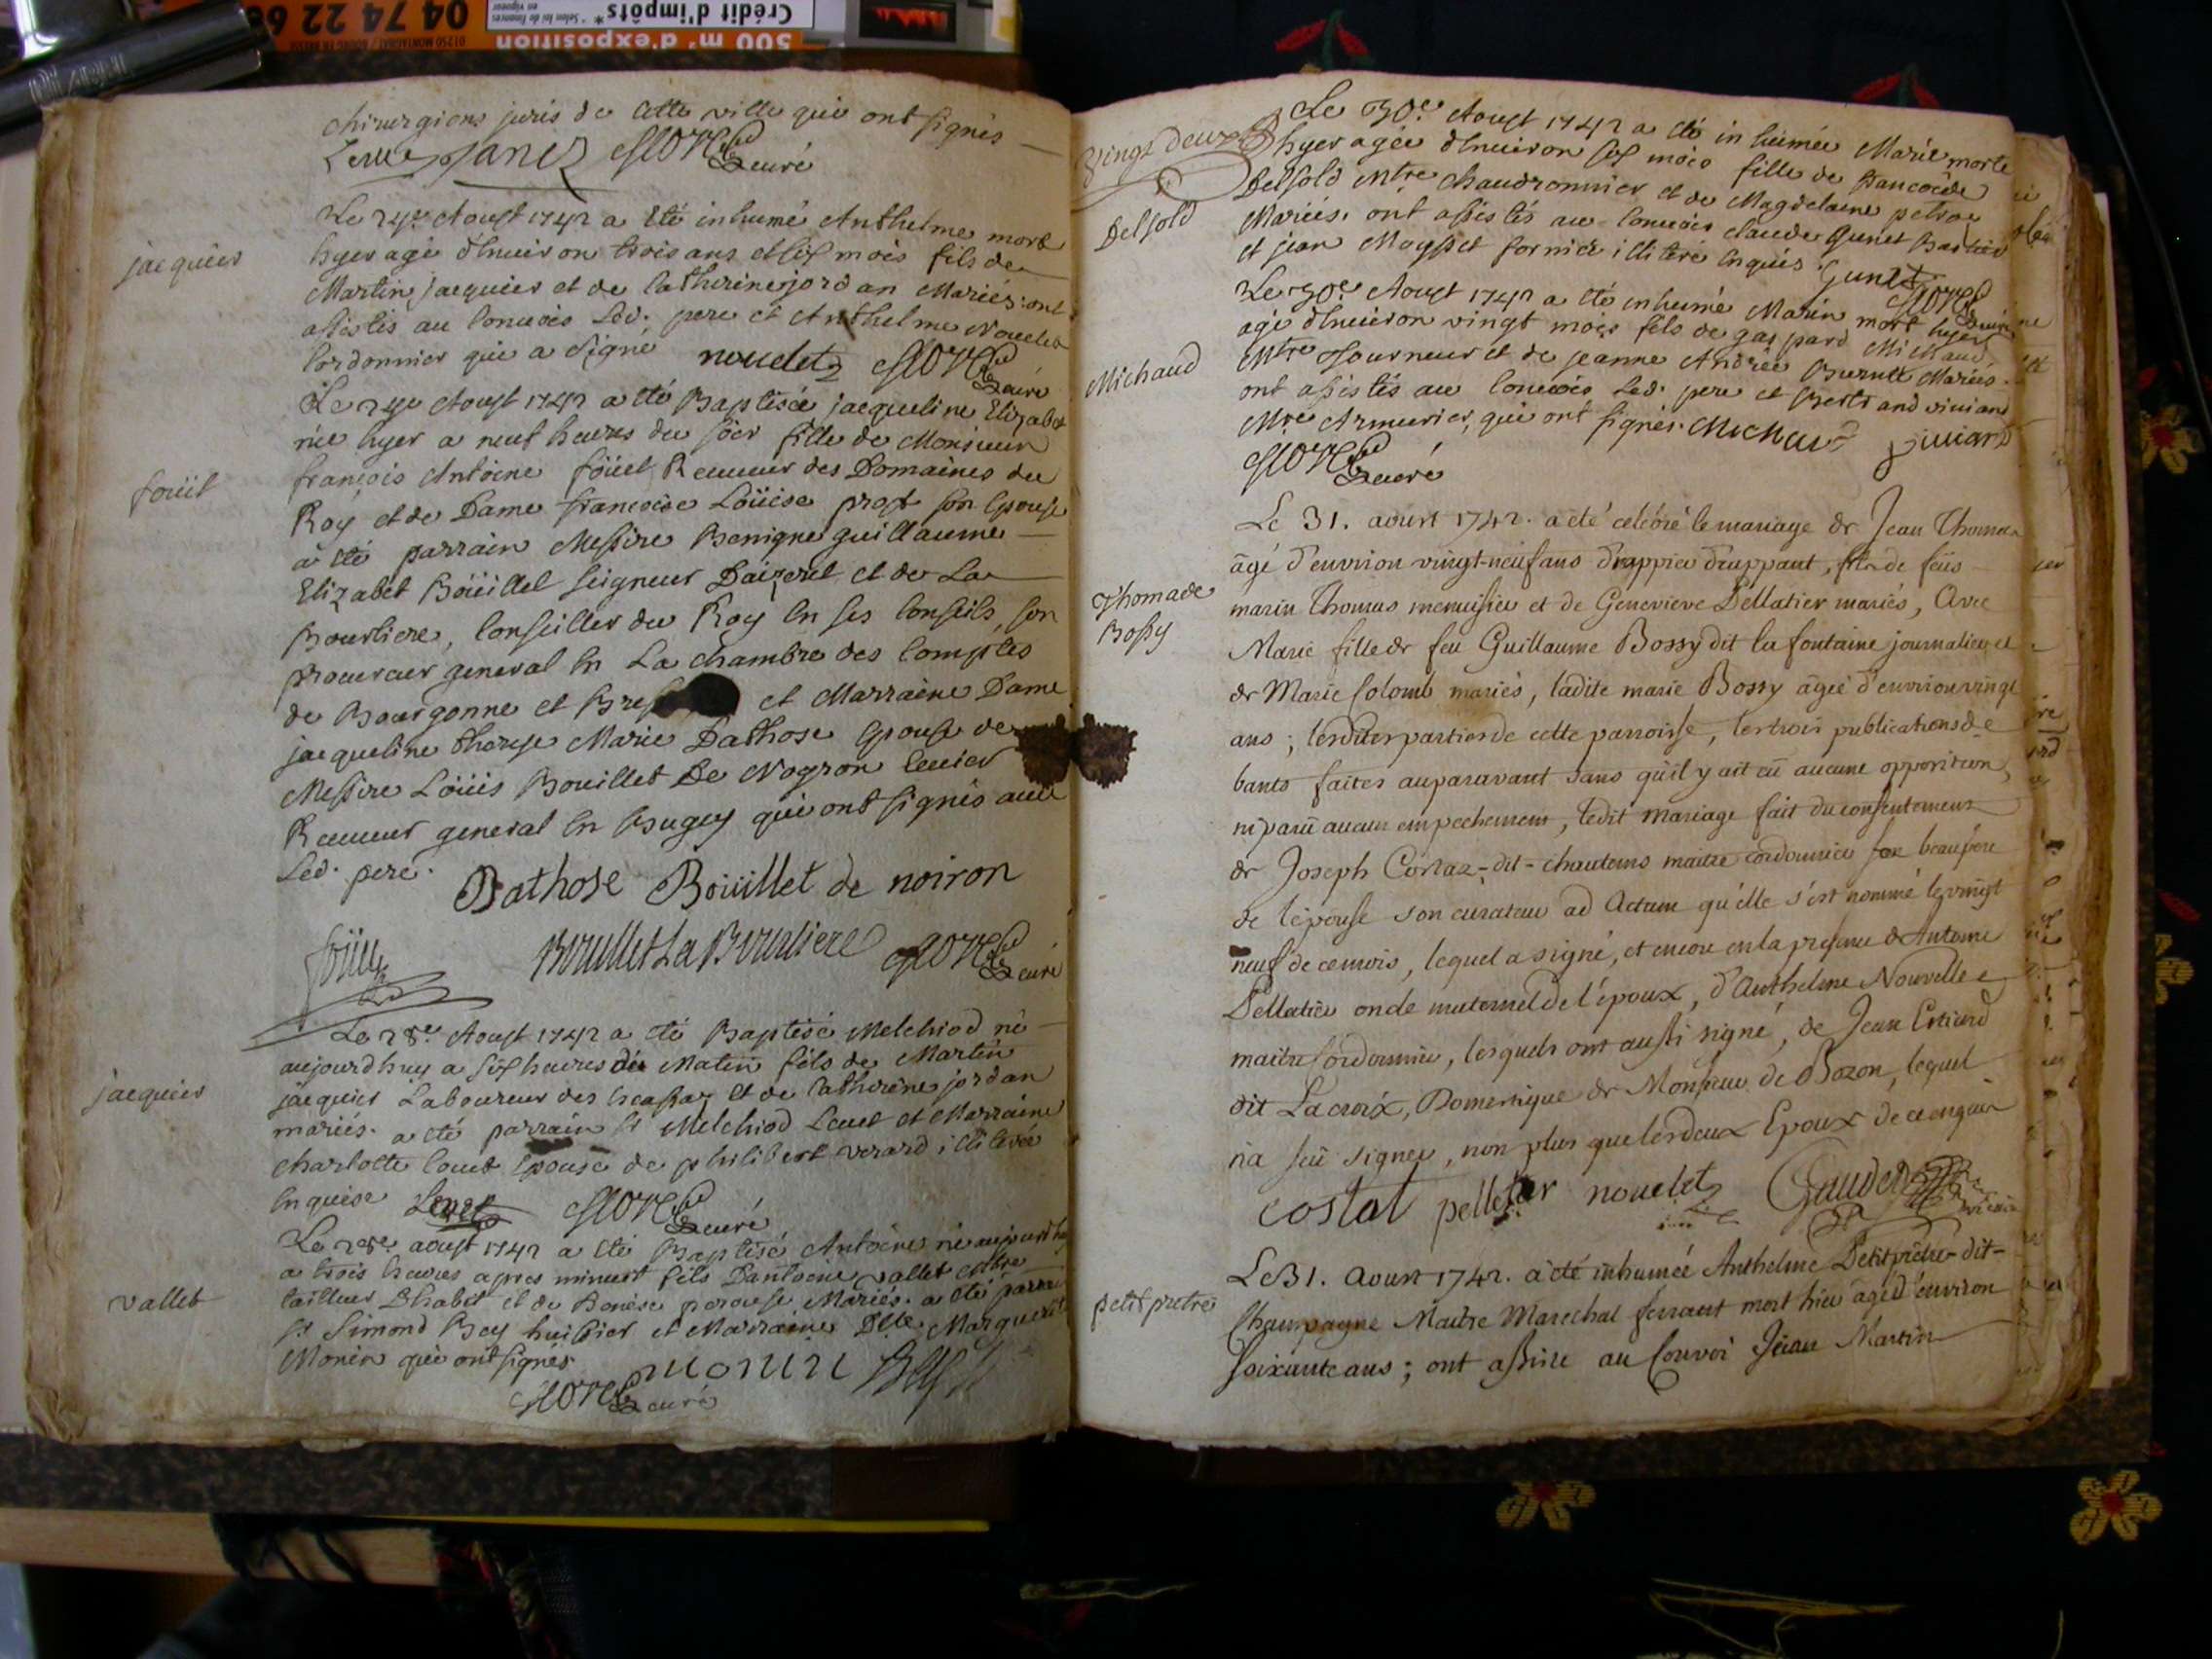 500 m² d'exposition
Crédit d'impôts * Selon loi de finances en vigueur
04 74 22 6
chirurgiens jurés de cette ville qui ont signés
curé
jacquier
Le 24e Aoust 1742 a été inhumé Anthelme mort
hyer agé d'enuiron trois ans et six mois fils de
Martin jacquier et de Catherine jordan Mariés: ont
assistés au conuois led. pere et Anthelme Nouelet
Cordonnier qui a signé nouelet
curé
fouït
Le Aoust 1742 a été Baptisée jacqueline Elizabet
née hyer a neuf heures du soir fille de Monsieur
françois Antoine foüet Receueur des Domaines du
Roy et de Dame francoise Loüise prost son Epouse
a été parrain Messire Benigne guillaume
Elizabet Boüillet seigneur Daizerel et de La
Bourliere, Conseiller du Roy En ses Conseils, son
procureur general En La chambre des Comptes
de Bourgonne et et Marraine Dame
jacqueline therese Marie Dathose Epouse de
Messire Loüis Bouillet De Nogron Ecuier
Receueur general En Bugey qui ont signés auec
Led. pere.
Dathose Boüillet de noiron
Bouillet La Bourliere curé
jacquier
Le 28e Aoust 1742 a été Baptisé Melchiod né
aujourdhuy a six heures du Matin fils de Martin
jacquier Laboureur des et de Catherine jordan
mariés. a été parrain sr Melchiod Leuet et Marraine
charlotte Couet Epouse de philibert verard illiterée
Enquise curé
vallet
Le 28e aoust 1742 a été Baptisé Antoine né aujourdhuy
a trois heures apres minuit fils Dantoine vallet Mtre
tailleur Dhabit et de Benoise perouse Mariés. a été parrain
sr Simond Bey huissier et Marraine Dlle Marguerite
Monin qui ont signés monin Bey
curé
Vingt deux
Delsold
Le 30e Aoust 1742 a été inhumée Marie morte
hyer agée d'Enuiron six mois fille de francois de
Delsold Mtre chaudronnier et de Magdelaine
Mariés. ont assistés au conuois claude Gunet
et jean Moysset fornier illiteré Enquis. Gunet
Michaud
Le 30e Aoust 1742 a été inhumé Marin mort hyer
agé d'Enuiron vingt mois fils de gaspard Michaud
Mtre Tourneur et de jeanne Andrée Mariés.
ont assistés au conuois Led. pere et Bertrand viuiand
Mtre Armurier, qui ont signés. Michaud viuiand
curé
Thoma de
Bossy
Le 31. aoust 1742. a été célébré le mariage de Jean Thomas
âgé d'environ vingt-neuf ans fils de feüs
marin Thomas menuisier et de Genevieve Pellatier mariés, Avec
Marie fille de feu Guillaume Bossy dit la fontaine journalier et
de Marie Colomb mariés, ladite marie Bossy âgée d'environ vingt
ans; lesdites parties de cette parroisse, les trois publications de
bants faites auparavant sans qu'il y ait eû aucune opposition,
ni parû aucun empechement, ledit mariage fait du consentement
de Joseph Costaz-dit-chautems maitre cordonnier beaupére
de l'épouse son curateur ad Actum qu'elle s'est nommé le vingt
neuf de ce mois, lequel a signé, et encore en la presence d'Antoine
Pellatier oncle maternel de l'époux, d'Anthelme Nouvellet
maitre Cordonnier, lesquels ont aussi signé, de Jean
dit Lacroix, Domestique de Monsieur de Bozon, lequel
n'a seû signer, non plus que les deux Epoux de ce enquis
costat pelletier nouelet
petit pretre
Le 31. Aoust 1742. a été inhumée Anthelme Petitprêtre-dit-
Champagne Maitre Marechal ferrant mort hier âgé d'environ
soixante ans; ont assisté au Convoi Jean Martin